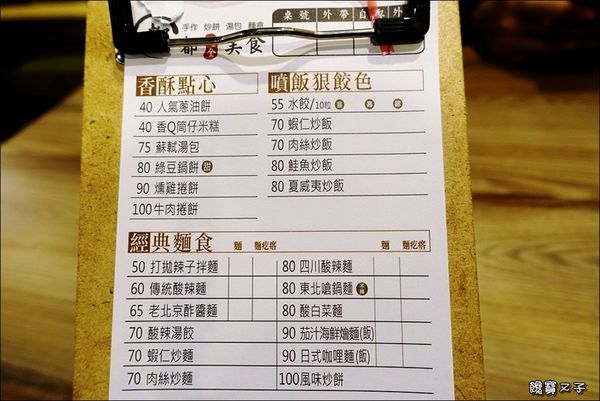 手作 炒餅 湯包 麵倉
都 美食
桌號 外帶 自 外
香酥點心
40 人氣蔥油餅
40 香Q筒仔米糕
75 蘇軾湯包
80 綠豆鍋餅 甜
90 燻雞捲餅
100 牛肉捲餅
噴飯狠餃色
55 水餃/10粒
70 蝦仁炒飯
70 肉絲炒飯
80 鮭魚炒飯
80 夏威夷炒飯
經典麵食 麵 麵疙瘩 麵 麵疙瘩
50 打拋辣子拌麵
60 傳統酸辣麵
65 老北京酢醬麵
70 酸辣湯餃
70 蝦仁炒麵
70 肉絲炒麵
80 四川酸辣麵
80 東北嗆鍋麵
80 酸白菜麵
90 茄汁海鮮燴麵(飯)
90 日式咖哩麵(飯)
100 風味炒餅
饞寶ㄡ子